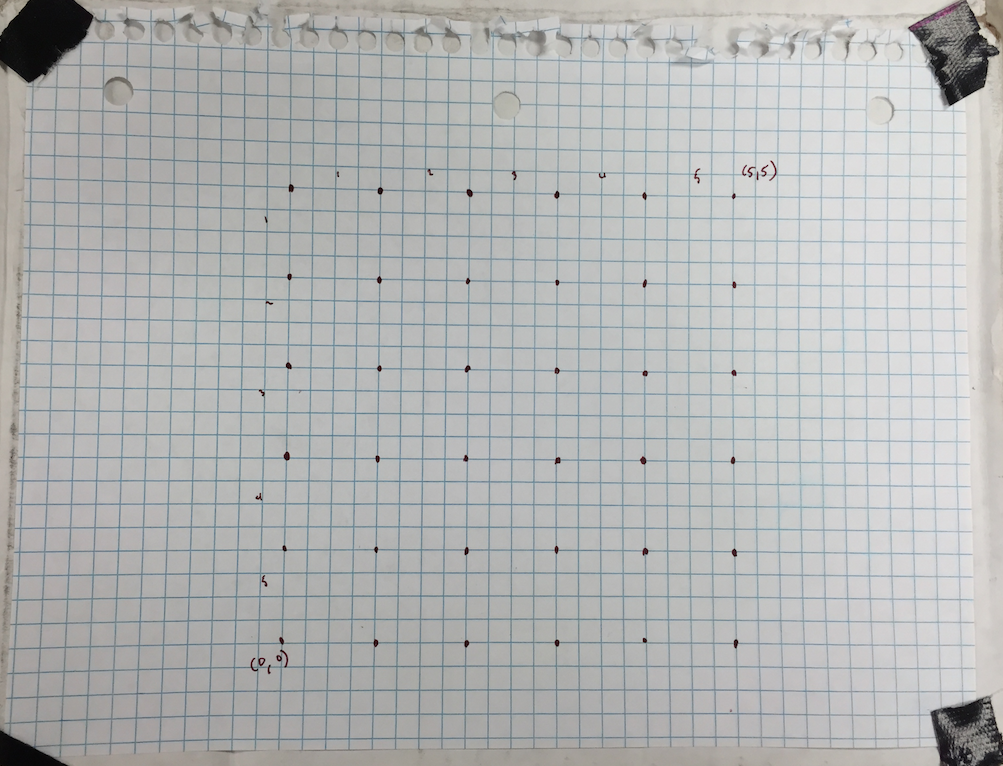 1 2 3 4 5 (5,5)
1
2
3
4
5
(0,0)